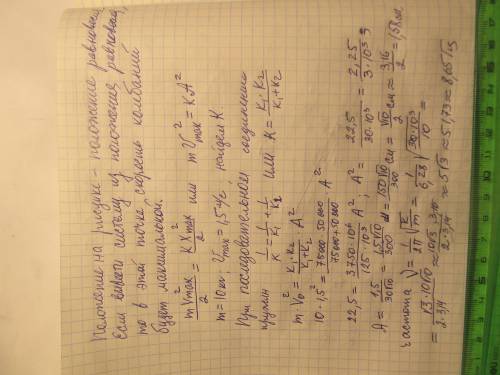 Положение на рисунке - положение равновесия,
Если вывести систему из положения равновесия,
то в этой точке скорость колебаний
будет максимальной.
mV²max/2 = kX²max/2 или mV²max = kA²
m = 10 кг, Vmax = 1,5 м/с, найдем K
При последовательном соединении
пружин 1/K = 1/K₁ + 1/K₂ или K = K₁·K₂/K₁+K₂
m·V₀² = K₁·K₂/K₁+K₂ A²
10·1,5² = 75000·50000/75000+50000 A²
22,5 = 3750·10⁶/125·10³ A², A² = 22,5/30·10³ = 2,25/3·10³
A = 1,5/30√10 = 1,5√10/300 м = 150√10/300 см = √10/2 см ≈ 3,16/2 = 1,58 см
Частота ν = 1/2π √k/m = 1/6,28 √30·10³/10 =
= √3·10√10/2·3,14 ≈ 10√3·3,10/2·3,14 ≈ 5√3 ≈ 5·1,73 ≈ 8,65 Гц